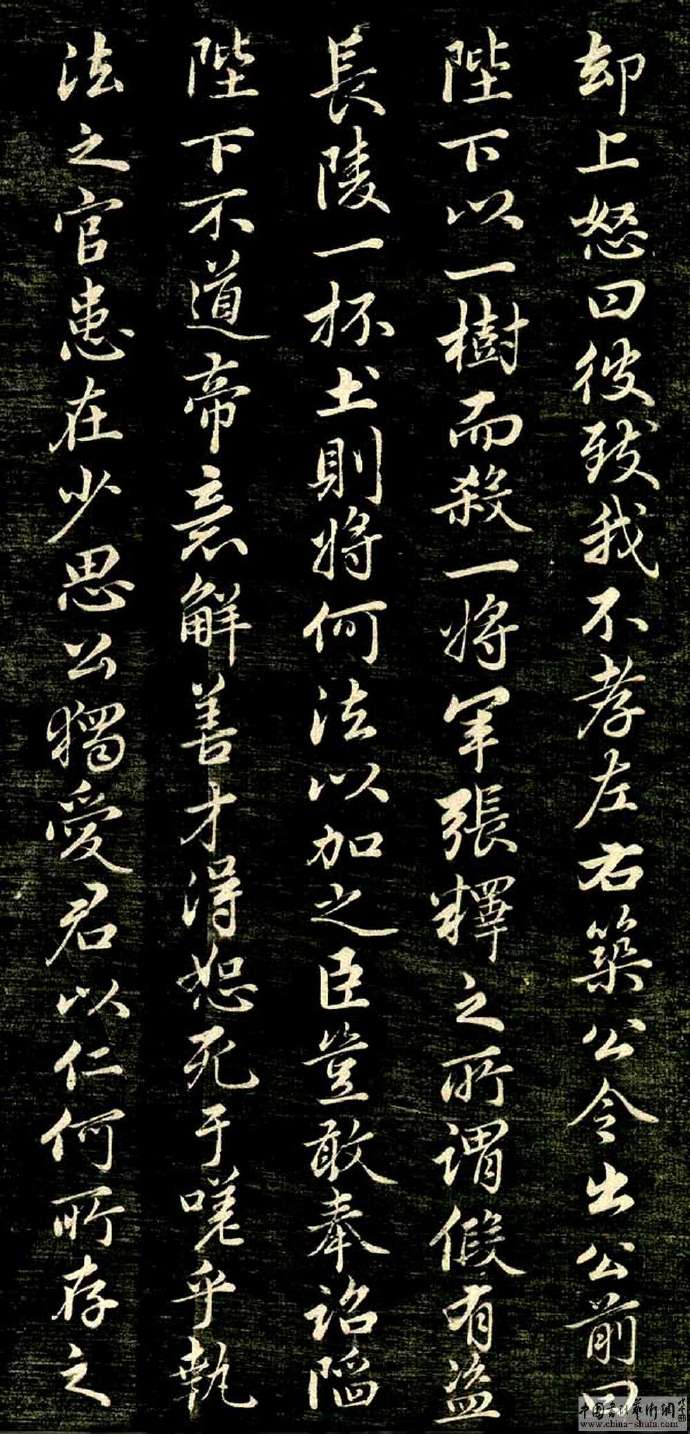 却上怒曰彼致我不孝左右築公令出公前曰
陛下以一樹而殺一將軍張釋之所謂假有盜
長陵一抔土則將何法以加之臣豈敢奉詔陷
陛下不道帝意解善才得恕死于嗟乎執
法之官患在少恩公獨愛君以仁何所存之
中国书法艺术网
www.china-shufa.com